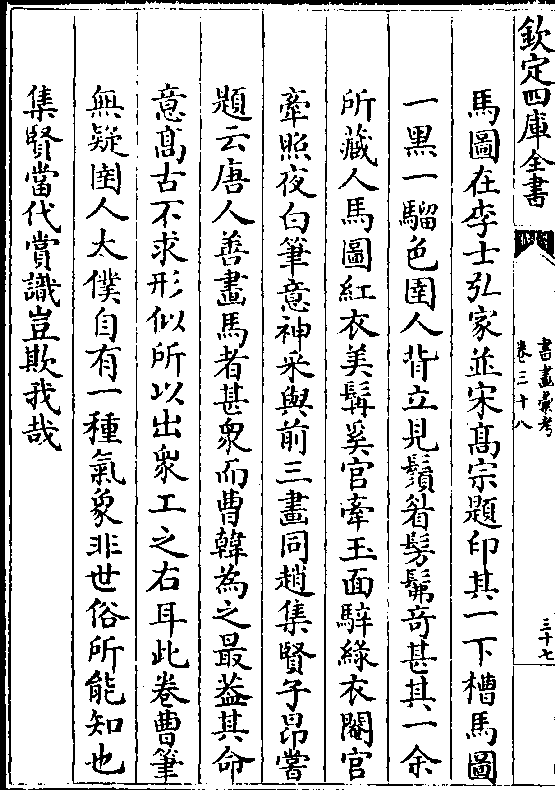 欽定四庫全書
書畫彙考
卷三十八
三十七
馬圖在李士弘家並宋髙宗題印其一下槽馬圖
一黒一騮色圉人背立見鬚㡳髣髴竒甚其一余
所藏人馬圖紅衣美髯奚官牽玉面騂緑衣閹官
牽照夜白筆意神采與前三畫同趙集賢子昂嘗
題云唐人善畫馬者甚衆而曹韓為之最葢其命
意髙古不求形似所以出衆工之右耳此卷曹筆
無疑圉人太僕自有一種氣象非世俗所能知也
集賢當代賞識豈欺我哉